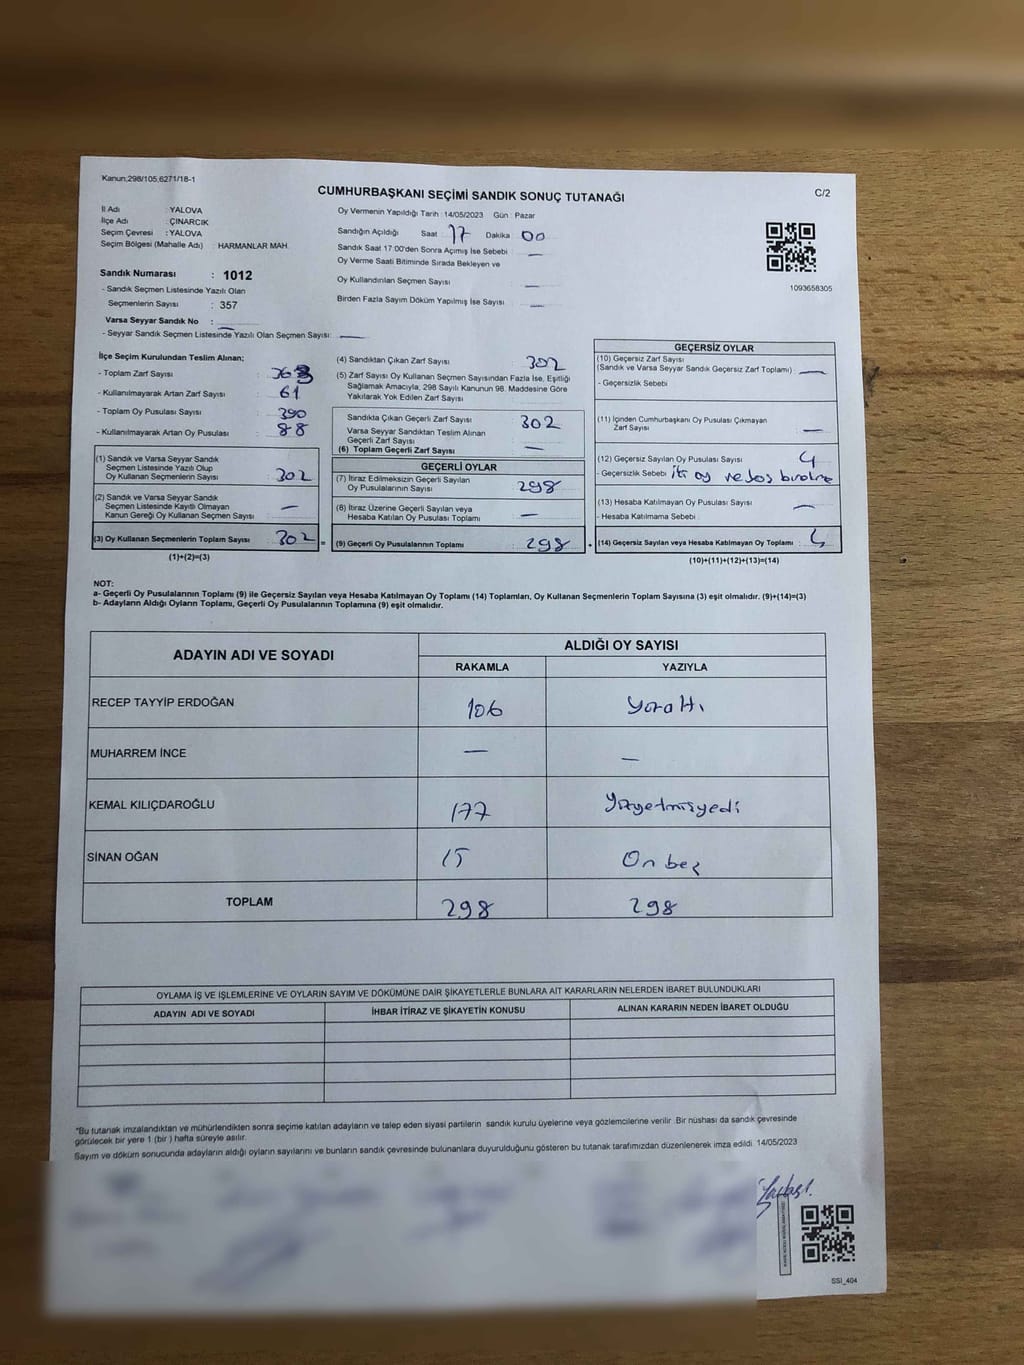 Kanun,298/105,6271/18-1
CUMHURBAŞKANI SEÇİMİ SANDIK SONUÇ TUTANAĞI
C/2
İl Adı : YALOVA
İlçe Adı : ÇINARCIK
Seçim Çevresi : YALOVA
Seçim Bölgesi (Mahalle Adı) : HARMANLAR MAH.
Sandık Numarası : 1012
- Sandık Seçmen Listesinde Yazılı Olan
Seçmenlerin Sayısı : 357
Varsa Seyyar Sandık No :
- Seyyar Sandık Seçmen Listesinde Yazılı Olan Seçmen Sayısı: —
Oy Vermenin Yapıldığı Tarih : 14/05/2023 Gün : Pazar
Sandığın Açıldığı Saat 17 Dakika 00
Sandık Saat 17:00'den Sonra Açımış İse Sebebi —
Oy Verme Saati Bitiminde Sırada Bekleyen ve
Oy Kullandırılan Seçmen Sayısı —
Birden Fazla Sayım Döküm Yapılmış İse Sayısı —
1093658305
İlçe Seçim Kurulundan Teslim Alınan;
- Toplam Zarf Sayısı : 363
- Kullanılmayarak Artan Zarf Sayısı : 61
- Toplam Oy Pusulası Sayısı : 390
- Kullanılmayarak Artan Oy Pusulası : 88
(1) Sandık ve Varsa Seyyar Sandık
Seçmen Listesinde Yazılı Olup
Oy Kullanan Seçmenlerin Sayısı : 302
(2) Sandık ve Varsa Seyyar Sandık
Seçmen Listesinde Kayıtlı Olmayan
Kanun Gereği Oy Kullanan Seçmen Sayısı : —
(3) Oy Kullanan Seçmenlerin Toplam Sayısı : 302 =
(1)+(2)=(3)
(4) Sandıktan Çıkan Zarf Sayısı 302
(5) Zarf Sayısı Oy Kullanan Seçmen Sayısından Fazla İse, Eşitliği
Sağlamak Amacıyla, 298 Sayılı Kanunun 98. Maddesine Göre
Yakılarak Yok Edilen Zarf Sayısı
Sandıkta Çıkan Geçerli Zarf Sayısı 302
Varsa Seyyar Sandıktan Teslim Alınan
Geçerli Zarf Sayısı
(6) Toplam Geçerli Zarf Sayısı —
GEÇERLİ OYLAR
(7) İtiraz Edilmeksizin Geçerli Sayılan
Oy Pusulalarının Sayısı : 298
(8) İtiraz Üzerine Geçerli Sayılan veya
Hesaba Katılan Oy Pusulası Toplamı : —
(9) Geçerli Oy Pusulalarının Toplamı : 298 +
GEÇERSİZ OYLAR
(10) Geçersiz Zarf Sayısı
(Sandık ve Varsa Seyyar Sandık Geçersiz Zarf Toplamı) —
- Geçersizlik Sebebi
(11) İçinden Cumhurbaşkanı Oy Pusulası Çıkmayan
Zarf Sayısı —
(12) Geçersiz Sayılan Oy Pusulası Sayısı 4
- Geçersizlik Sebebi iki oy
(13) Hesaba Katılmayan Oy Pusulası Sayısı —
- Hesaba Katılmama Sebebi
(14) Geçersiz Sayılan veya Hesaba Katılmayan Oy Toplamı : 4
(10)+(11)+(12)+(13)=(14)
NOT:
a- Geçerli Oy Pusulalarının Toplamı (9) ile Geçersiz Sayılan veya Hesaba Katılmayan Oy Toplamı (14) Toplamları, Oy Kullanan Seçmenlerin Toplam Sayısına (3) eşit olmalıdır. (9)+(14)=(3)
b- Adayların Aldığı Oyların Toplamı, Geçerli Oy Pusulalarının Toplamına (9) eşit olmalıdır.
ADAYIN ADI VE SOYADI
ALDIĞI OY SAYISI
RAKAMLA YAZIYLA
RECEP TAYYİP ERDOĞAN 106 Yüzaltı
MUHARREM İNCE — —
KEMAL KILIÇDAROĞLU 177 Yüzyetmişyedi
SİNAN OĞAN 15 Onbeş
TOPLAM 298 298
OYLAMA İŞ VE İŞLEMLERİNE VE OYLARIN SAYIM VE DÖKÜMÜNE DAİR ŞİKAYETLERLE BUNLARA AİT KARARLARIN NELERDEN İBARET BULUNDUKLARI
ADAYIN ADI VE SOYADI İHBAR İTİRAZ VE ŞİKAYETİN KONUSU ALINAN KARARIN NEDEN İBARET OLDUĞU
*Bu tutanak imzalandıktan ve mühürlendikten sonra seçime katılan adayların ve talep eden siyasi partilerin sandık kurulu üyelerine veya gözlemcilerine verilir. Bir nüshası da sandık çevresinde
görülecek bir yere 1 (bir ) hafta süreyle asılır.
Sayım ve döküm sonucunda adayların aldığı oyların sayılarını ve bunların sandık çevresinde bulunanlara duyurulduğunu gösteren bu tutanak tarafımızdan düzenlenerek imza edildi. 14/05/2023
SSI_404